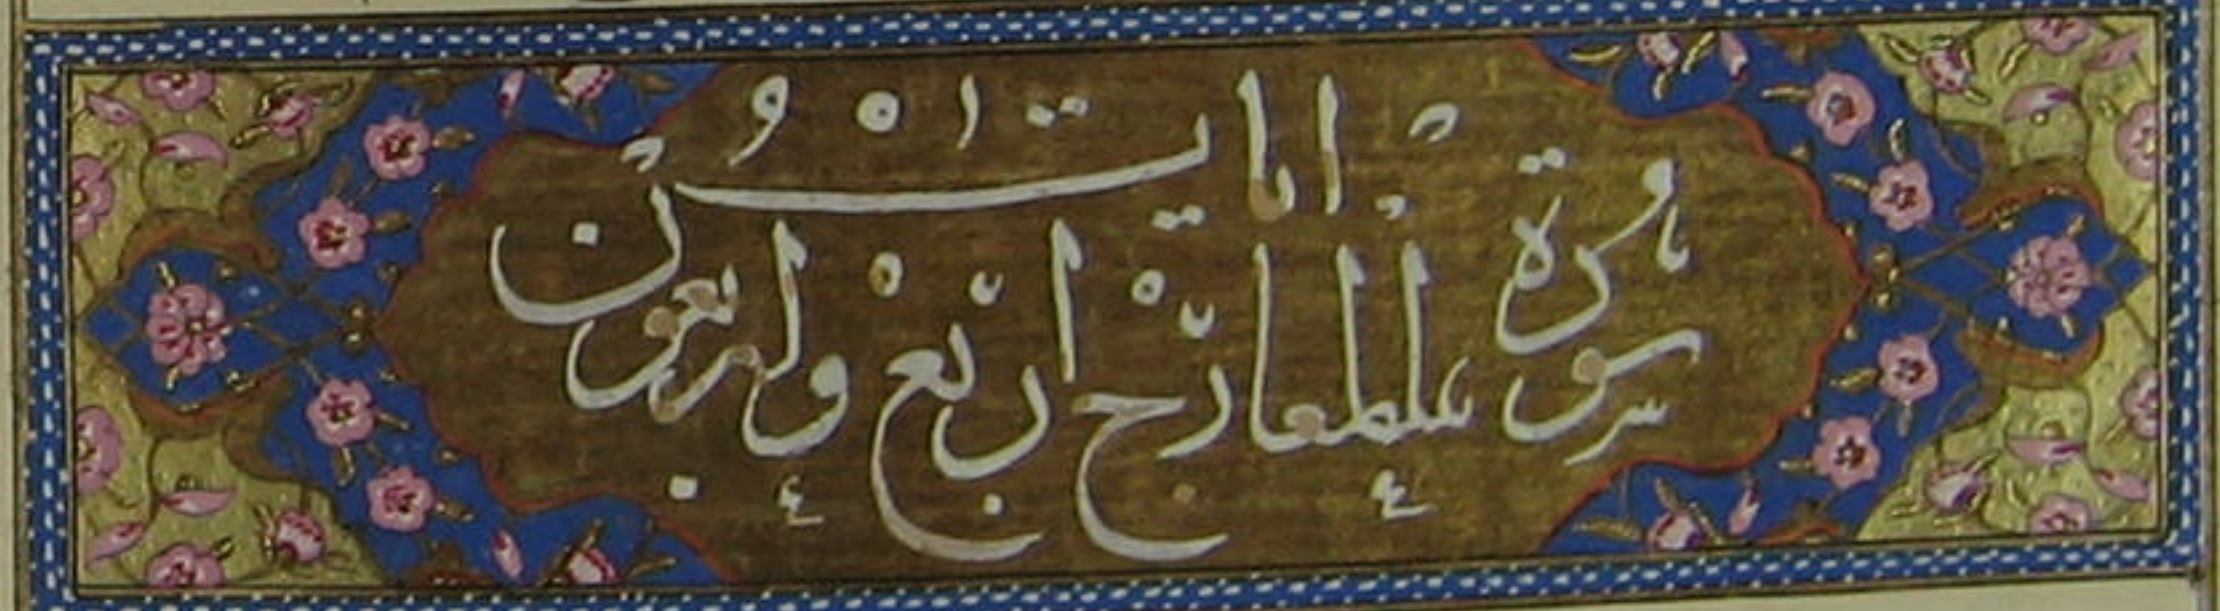 سورة المعارج اربع واربعون ايات